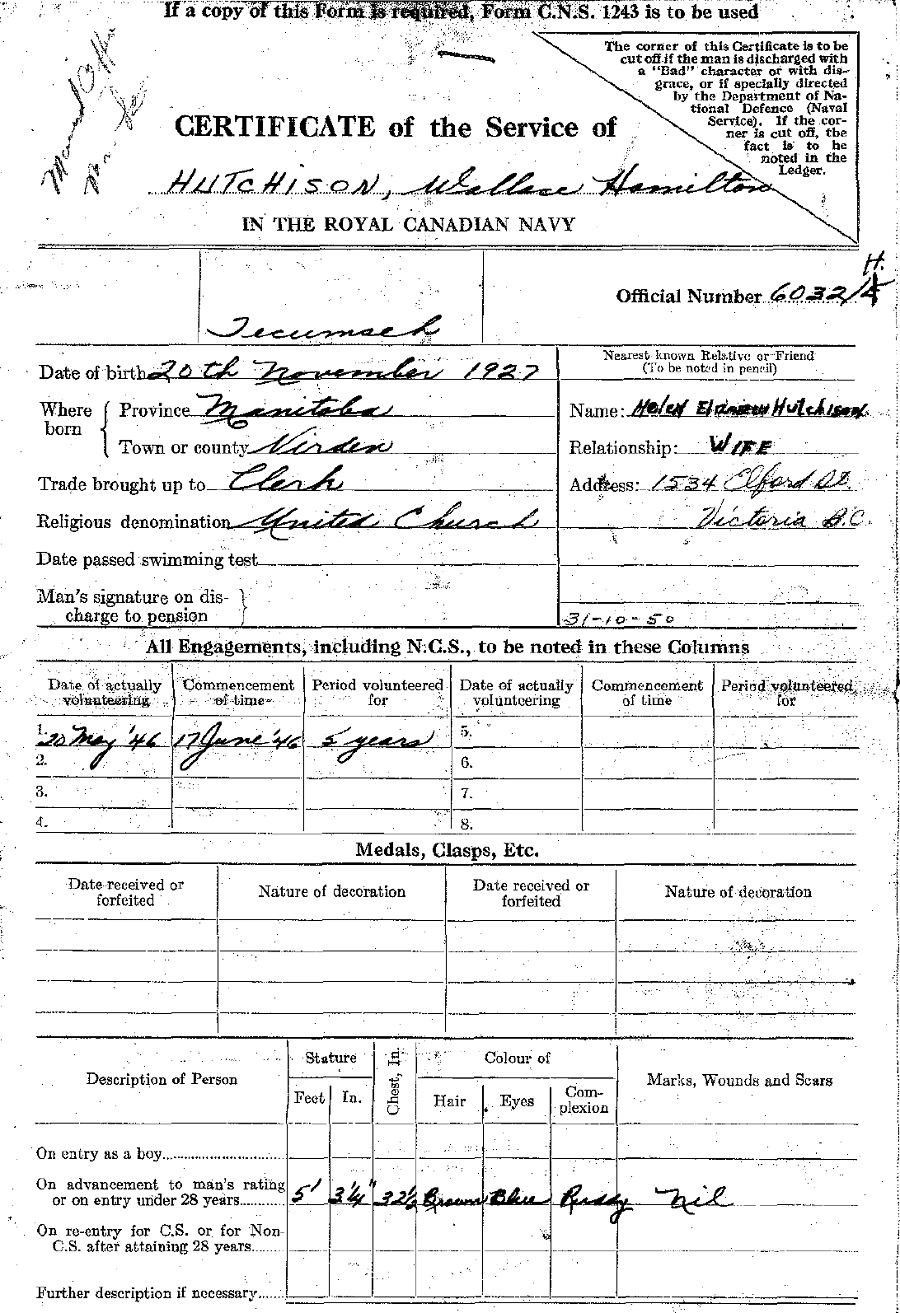 If a copy of this Form is required, Form C.N.S. 1243 is to be used
The corner of this Certificate is to be
cut off if the man is discharged with
a "Bad" character or with dis-
grace, or if specially directed
by the Department of Na-
tional Defence (Naval
Service). If the cor-
ner is cut off, the
fact is to be
noted in the
Ledger.
CERTIFICATE of the Service of
HUTCHISON, Wallace Hamilton
IN THE ROYAL CANADIAN NAVY
Official Number 6032/H.
Tecumseh
Nearest known Relative or Friend
(To be noted in pencil)
Date of birth 20th November 1927
Where born
Province Manitoba
Town or county Virden
Trade brought up to Clerk
Religious denomination United Church
Date passed swimming test
Man's signature on dis-
charge to pension
Name: Helen Elizabeth Hutchison
Relationship: WIFE
Address: 1534 Elford St.
Victoria B.C.
31-10-50
All Engagements, including N.C.S., to be noted in these Columns
Date of actually volunteering Commencement of time Period volunteered for Date of actually volunteering Commencement of time Period volunteered for
1. 20 May '46 17 June '46 5 years 5.
2. 6.
3. 7.
4. 8.
Medals, Clasps, Etc.
Date received or forfeited Nature of decoration Date received or forfeited Nature of decoration
Description of Person Stature Chest, In. Colour of Marks, Wounds and Scars
Feet In. Hair Eyes Com-plexion
On entry as a boy
On advancement to man's rating
or on entry under 28 years 5' 3¼" 32½ Brown Blue Ruddy Nil
On re-entry for C.S. or for Non-
C.S. after attaining 28 years
Further description if necessary